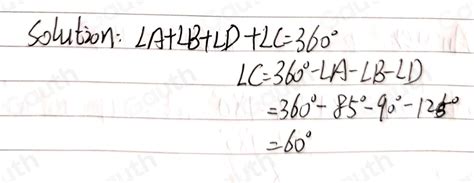 Solution: ∠A+∠B+∠D+∠C=360°
∠C=360°-∠A-∠B-∠D
=360°-85°-90°-125°
=60°